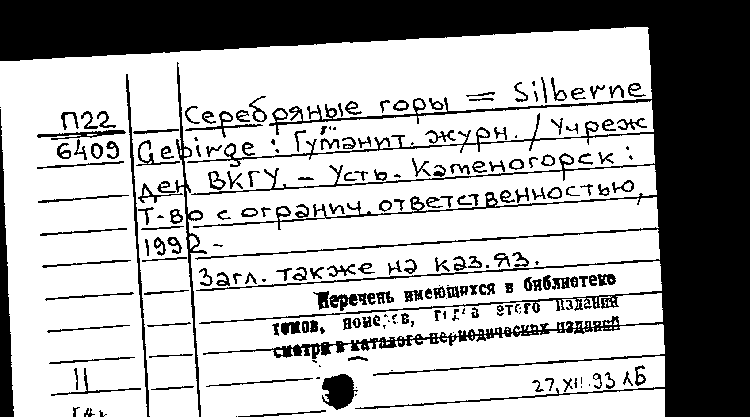 П22 Серебряные горы = Silberne
6409 Gebirge : Гуманит. журн. / Учреж
ден ВКГУ. – Усть-Каменогорск :
Т-во с огранич. ответственностью,
1992 -
Загл. также на каз. яз.
Перечень имеющихся в библиотеке
томов, номеров, годов этого издания
смотри в каталоге периодических изданий
11
27.XII.93 ЛБ